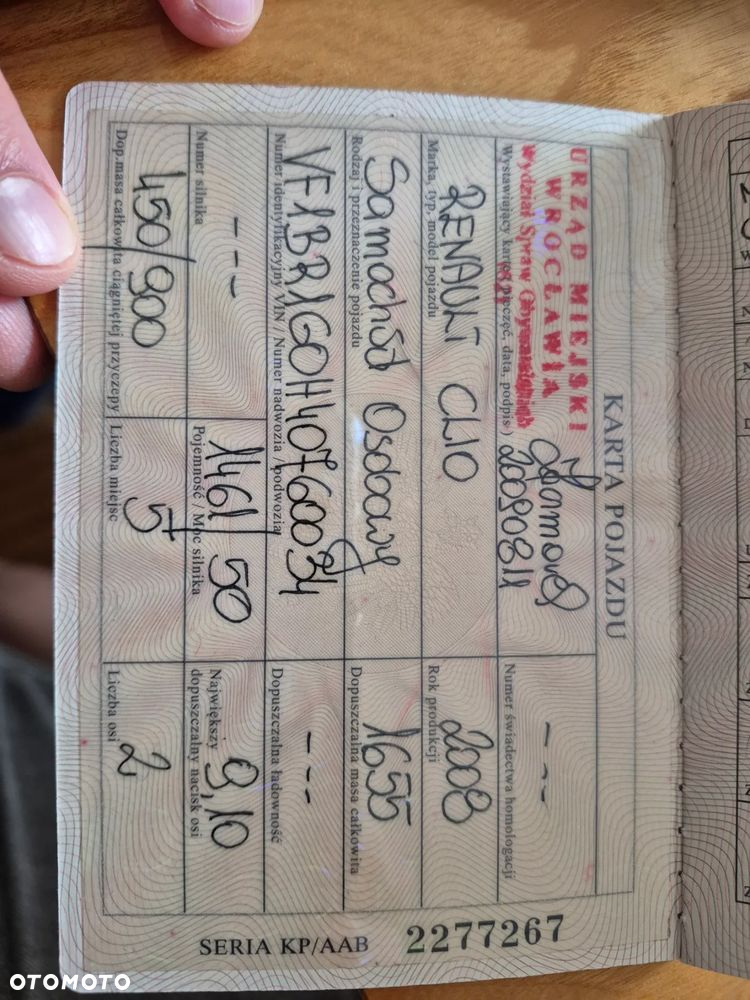 KARTA POJAZDU
URZĄD MIEJSKI
WROCŁAWIA
Wydział Spraw Obywatelskich
20090811
- - -
Wystawiający kartę (pieczęć, data, podpis)
Numer świadectwa homologacji
RENAULT CLIO
2008
Marka, typ, model pojazdu
Rok produkcji
Samochód Osobowy
1655
Rodzaj i przeznaczenie pojazdu
Dopuszczalna masa całkowita
VF1BR1G0H40760034
- - -
Numer identyfikacyjny VIN / Numer nadwozia / podwozia
Dopuszczalna ładowność
- - -
1461 / 50
9,10
Numer silnika
Pojemność / Moc silnika
Największy
dopuszczalny nacisk osi
450/900
5
2
Dop.masa całkowita ciągniętej przyczepy
Liczba miejsc
Liczba osi
SERIA KP/AAB 2277267
OTOMOTO